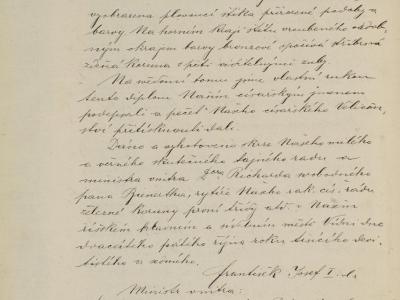 vyobrazena plovoucí štika přirozené podoby a
barvy. Na horním kraji štítu vroubeného ozdob-
ným okrajem barvy bronzové spočívá stříbrná
zděná koruna s pěti viditelnými zuby.
Na vědomí tomu jsme vlastní rukou
tento diplom Naším císařským jmenem
podepsali a pečeť Našeho císařského Veličen-
ství přitisknouti dali.
Dáno a vyhotoveno skrze Našeho milého
a věrného skutečného tajného radu a
ministra vnitra Richarda svobodného
pana Bienertha, rytíře Našeho rak. cís. řádu
železné koruny první třídy atd. v Našem
říšském hlavním a sídelním městě Vídni dne
dvacátého pátého října roku tisícího devi-
tistého a osmého.
František Josef I. v.r.
Ministr vnitra: